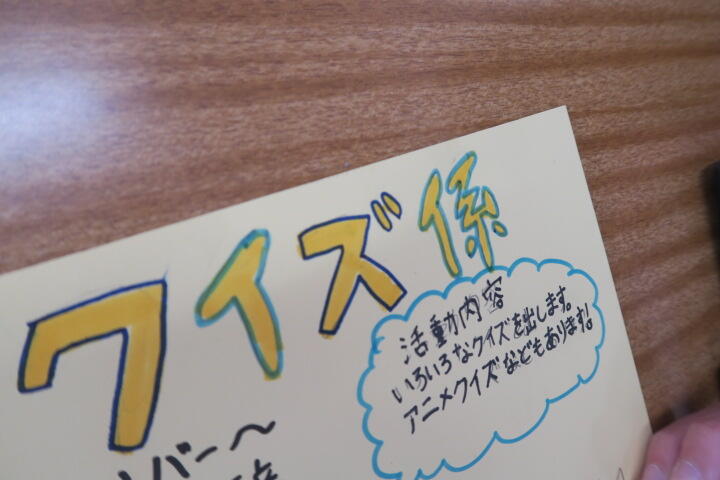 クイズ係
活動内容
いろいろなクイズを出します。
アニメクイズなどもあります!
ンバー〜